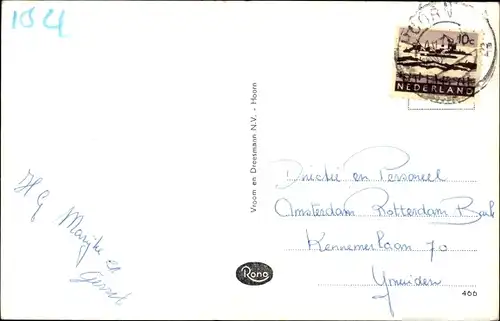 104
HOORN
10c
NEDERLAND
Vroom en Dreesmann N.V. - Hoorn
H G
Marijke en
Gerrit
Directie en Personeel
Amsterdam Rotterdam Bank
Kennemerlaan 70
Ymuiden
Rono
466